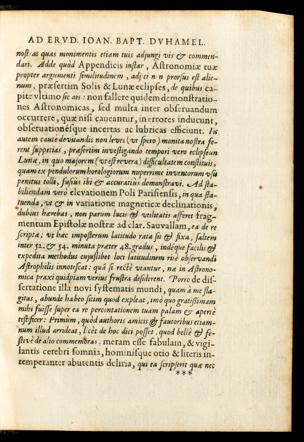 AD ERVD. IOAN. BAPT. DVHAMEL.
nostras quas monimentis etiam tuis adjungi vis & commen-
dari. Adde quòd Appendicis instar, Astronomiæ tuæ
propter argumenti similitudinem, adjici non prorsus est alie-
num, præsertim Solis & Lunæ eclipses, de quibus ca-
pite vltimo sic ais: non fallere quidem demonstratio-
nes Astronomicas, sed multa inter observandum
occurrere, quæ nisi caueantur, in errores inducunt,
observationésque incertas ac lubricas efficiunt. In
autem cauté devitandis non leves (vt spero) monita nostra fe-
rent suppetias, præsertim investigando tempori vero eclipseon
Lunæ, in quo majorem (vt est revera) difficultatem constituis,
quam ex pendulorum horologiorum nuperrimè inventorum vsu
penitus tolli, fusius ibi & accuratiùs demonstravi. Ad sta-
biliendam verò elevationem Poli Parisiensis, in qua sta-
tuenda, vt & in variatione magneticæ declinationis,
dubius hærebas, non parum lucis & vtilitatis afferet frag-
mentum Epistolæ nostræ ad clar. Sauvallam, ea de re
scripta: vt hac impostertum latitudo rata sit & fixa, saltem
inter 52. & 54. minuta præter 48. gradus, indéque facilis &
expedita methodus cujuslibet loci latitudinem ritè observandi
Astrophilis innotescat: quâ si rectè vtantur, na in Astrono-
mica praxi quidpiam verius frustra desiderent. Porro de dis-
sertatione illa novi systematis mundi, quam à me fla-
gitas, abunde habeo sitim quod expleat, imò quo gratissimam
mihi fuisse super ea re percontationem tuam palam & apertè
testificer: Primùm, quòd authoris amicis & fautoribus etiam-
num illud arrideat, licèt de hoc dici posset, quod bellè & fe-
stivè de alio commemoras, meram esse fabulam, & vigi-
lantis cerebri somnia, hominísque otio & literis in-
temperanter abutentis deliria, qui ea scripserit quæ nec
***